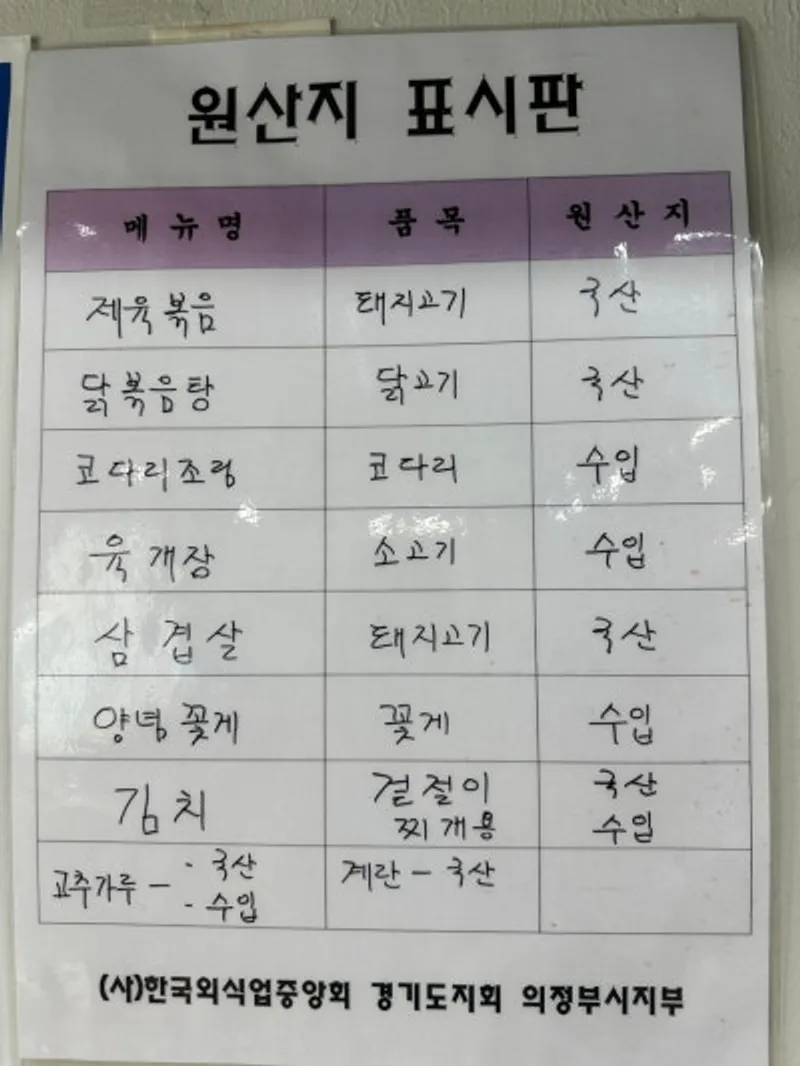 원산지 표시판
메뉴명 품목 원산지
제육볶음 돼지고기 국산
닭볶음탕 닭고기 국산
코다리조림 코다리 수입
육개장 소고기 수입
삼겹살 돼지고기 국산
양념꽃게 꽃게 수입
김치 겉절이 국산
찌개용 수입
고추가루 - · 국산 계란 - 국산
· 수입
(사)한국외식업중앙회 경기도지회 의정부시지부